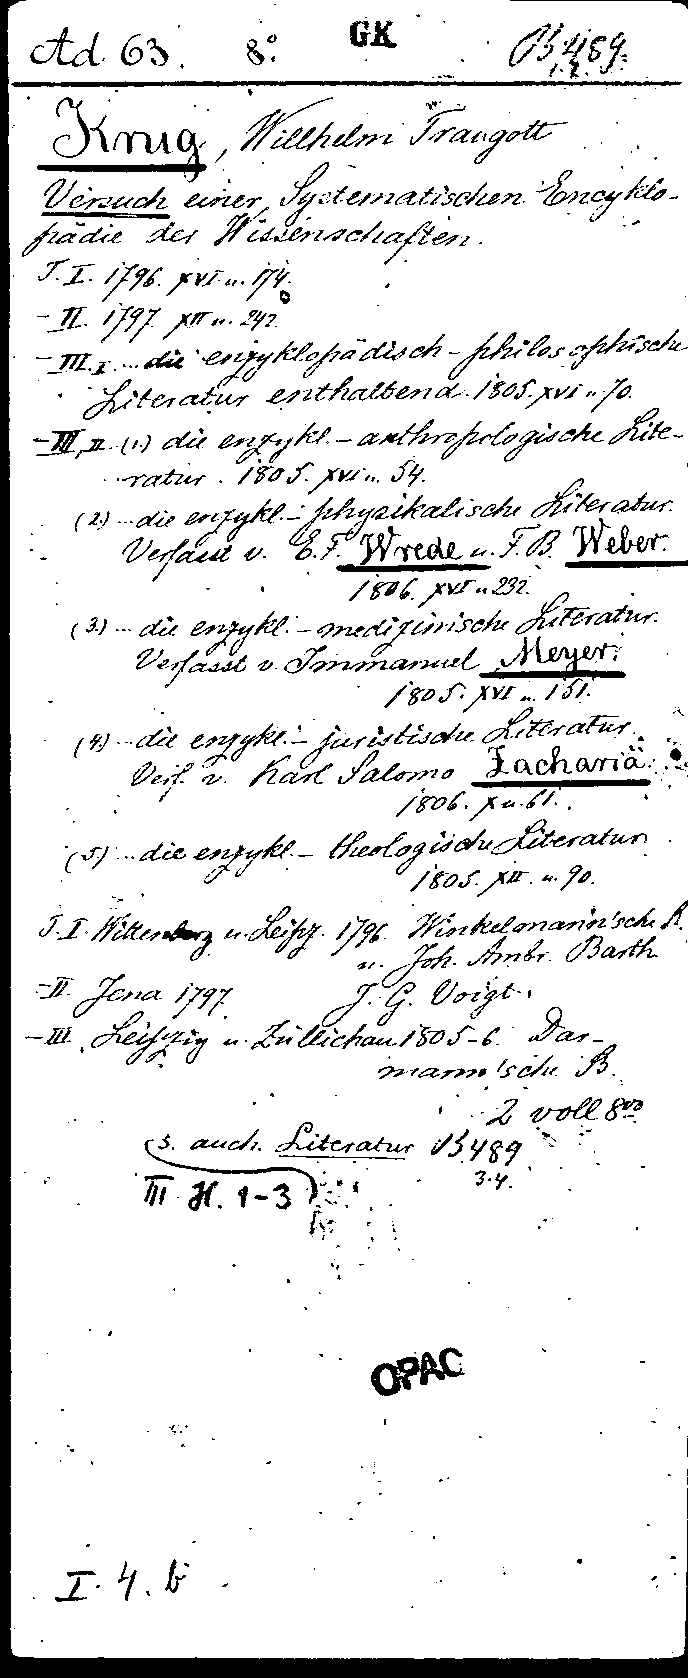 Ad 63. 8° GK B 489.
1.2.
Krug, Willhelm Traugott
Versuch einer Systematischen Encyklo-
pädie der Wissenschaften.
T. I. 1796. XVI u. 174.
- II. 1797. XII u. 242.
- III. I ... die enzyklopädisch - philosophische
Literatur enthaltend. 1805. XVI u. 70.
- III, II (1.) die enzykl. - anthropologische Lite-
ratur. 1805. XVI u. 54.
(2.) ... die enzykl. - physikalische Literatur.
Verfasst v. E. F. Wrede u. F. B. Weber.
1806. XVI u 232.
(3.) ... die enzykl. - medizinische Literatur.
Verfasst v. Immanuel Meyer.
1805. XVI u. 151.
(4) ... die enzykl. - juristische Literatur.
Verf. v. Karl Salomo Zachariä.
1806. X u. 61.
(5) ... die enzykl. - theologische Literatur
1805. XII. u. 90.
T. I. Wittenberg u. Leipz. 1796. Winkelmann'sche B.
u. Joh. Ambr. Barth
- II Jena 1797. J. G. Voigt.
- III, Leipzig u. Züllichau 1805-6. Dar-
mann'sche B.
2 voll 8vo
(s. auch. Literatur B 489
3.4.
III H. 1-3
OPAC
I. 4. b